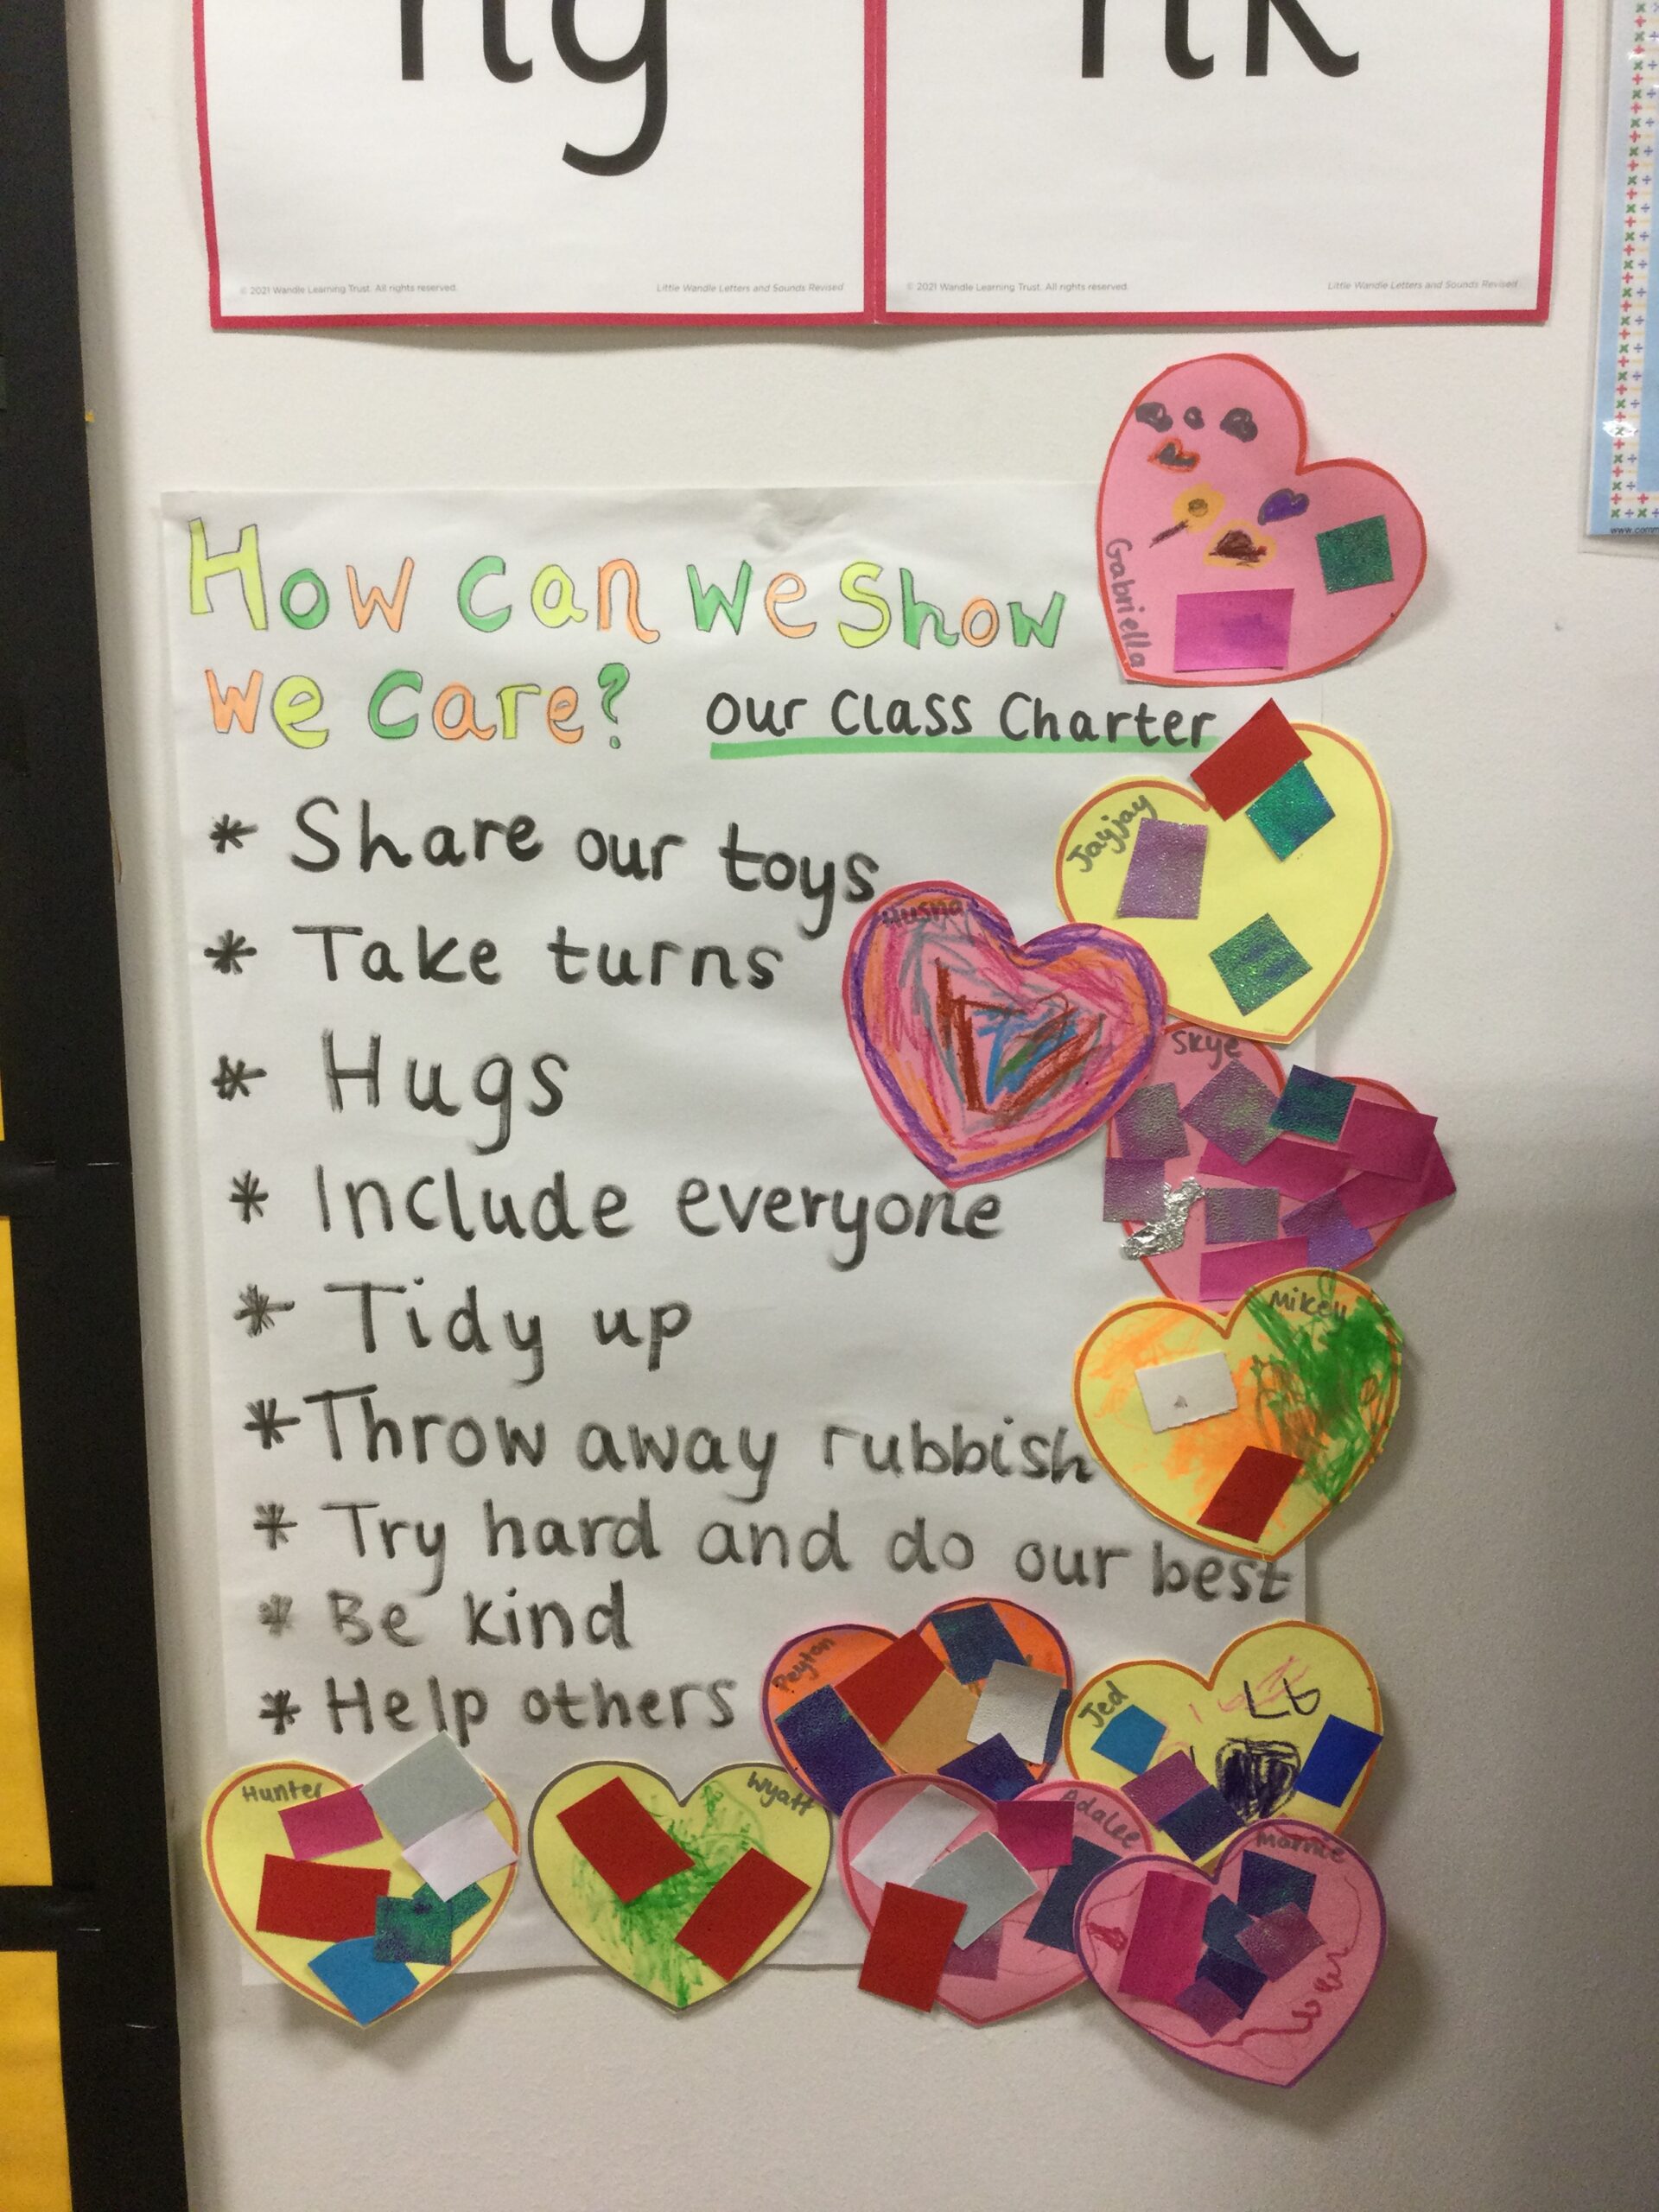 ng
nk
© 2021 Wandle Learning Trust. All rights reserved.
Little Wandle Letters and Sounds Revised
© 2021 Wandle Learning Trust. All rights reserved.
Little Wandle Letters and Sounds Revised
Gabriella
How can we show
we care? our Class Charter
Jayjay
* Share our toys
Husna
* Take turns
Skye
* Hugs
* Include everyone
Mikey
* Tidy up
* Throw away rubbish
* Try hard and do our best
* Be kind
Peyton
Jed
* Help others
Hunter
Wyatt
Adalee
Marnie